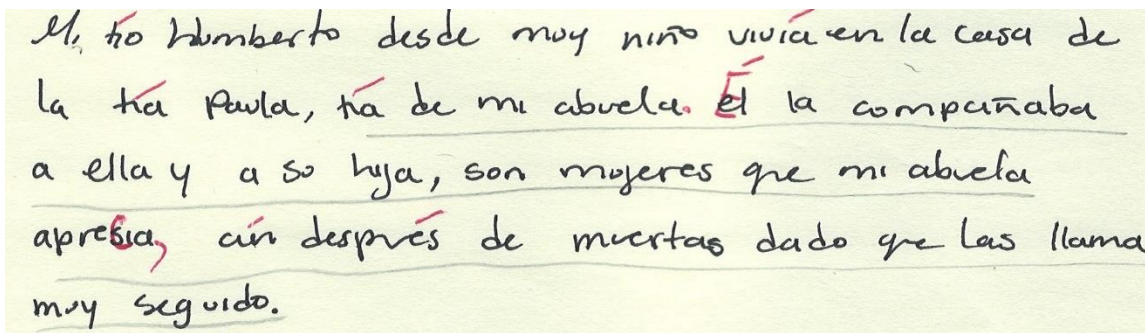 Mi tío Humberto desde muy niño vivía en la casa de
la tía Paula, tía de mi abuela. Él la compañaba
a ella y a su hija, son mujeres que mi abuela
apresia, aún después de muertas dado que las llama
muy seguido.